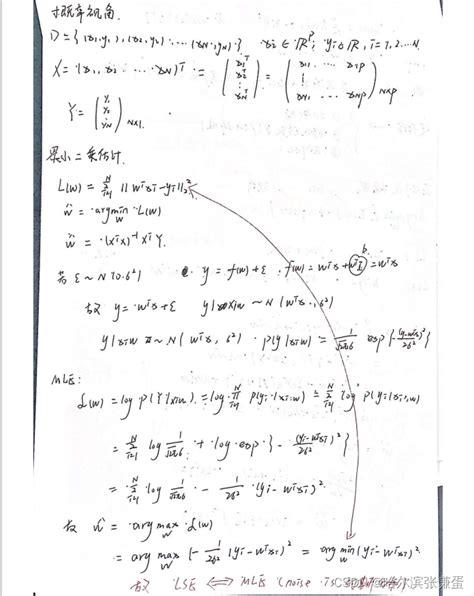 概率视角.
D={(x₁,y₁),(x₂,y₂),...(x_N,y_N)} xᵢ∈ℝᵖ, yᵢ∈ℝ, i=1,2...N.
X=(x₁,x₂ ... x_N)ᵀ = (x₁ᵀ x₂ᵀ ⋮ x_Nᵀ) = (x₁₁ ... x₁p ⋮ x_N₁ ... x_Np) N×p
Y=(y₁ y₂ ⋮ y_N) N×1.
最小二乘估计.
L(w) = Σᵢ₌₁ᴺ ||wᵀxᵢ-yᵢ||₂²
ŵ = argmin_w L(w)
ŵ = (XᵀX)⁻¹XᵀY.
若 ε~N(0.σ²) y=f(w)+ε f(w)=wᵀx+ =wᵀx
b
故 y=wᵀx+ε y|x;w ~ N(wᵀx, σ²)
y|x;w ~ N(wᵀx, σ²) p(y|x;w) = 1/√2πσ exp{-(y-wᵀx)²/2σ²}
MLE:
ℒ(w) = log p(Y|x;w) = log Πᵢ₌₁ᴺ p(yᵢ|xᵢ;w) = Σᵢ₌₁ᴺ log p(yᵢ|xᵢ;w)
= Σᵢ₌₁ᴺ log 1/√2πσ + log exp{-(yᵢ-wᵀxᵢ)²/2σ²}
= Σᵢ₌₁ᴺ log 1/√2πσ - 1/2σ² (yᵢ-wᵀxᵢ)².
故 ŵ = argmax_w ℒ(w)
= argmax_w (-1/2σ² (yᵢ-wᵀxᵢ)² = argmin_w (yᵢ-wᵀxᵢ)²
故 LSE ⟺ MLE (noise is
CSDN @哈尔滨张谦蛋